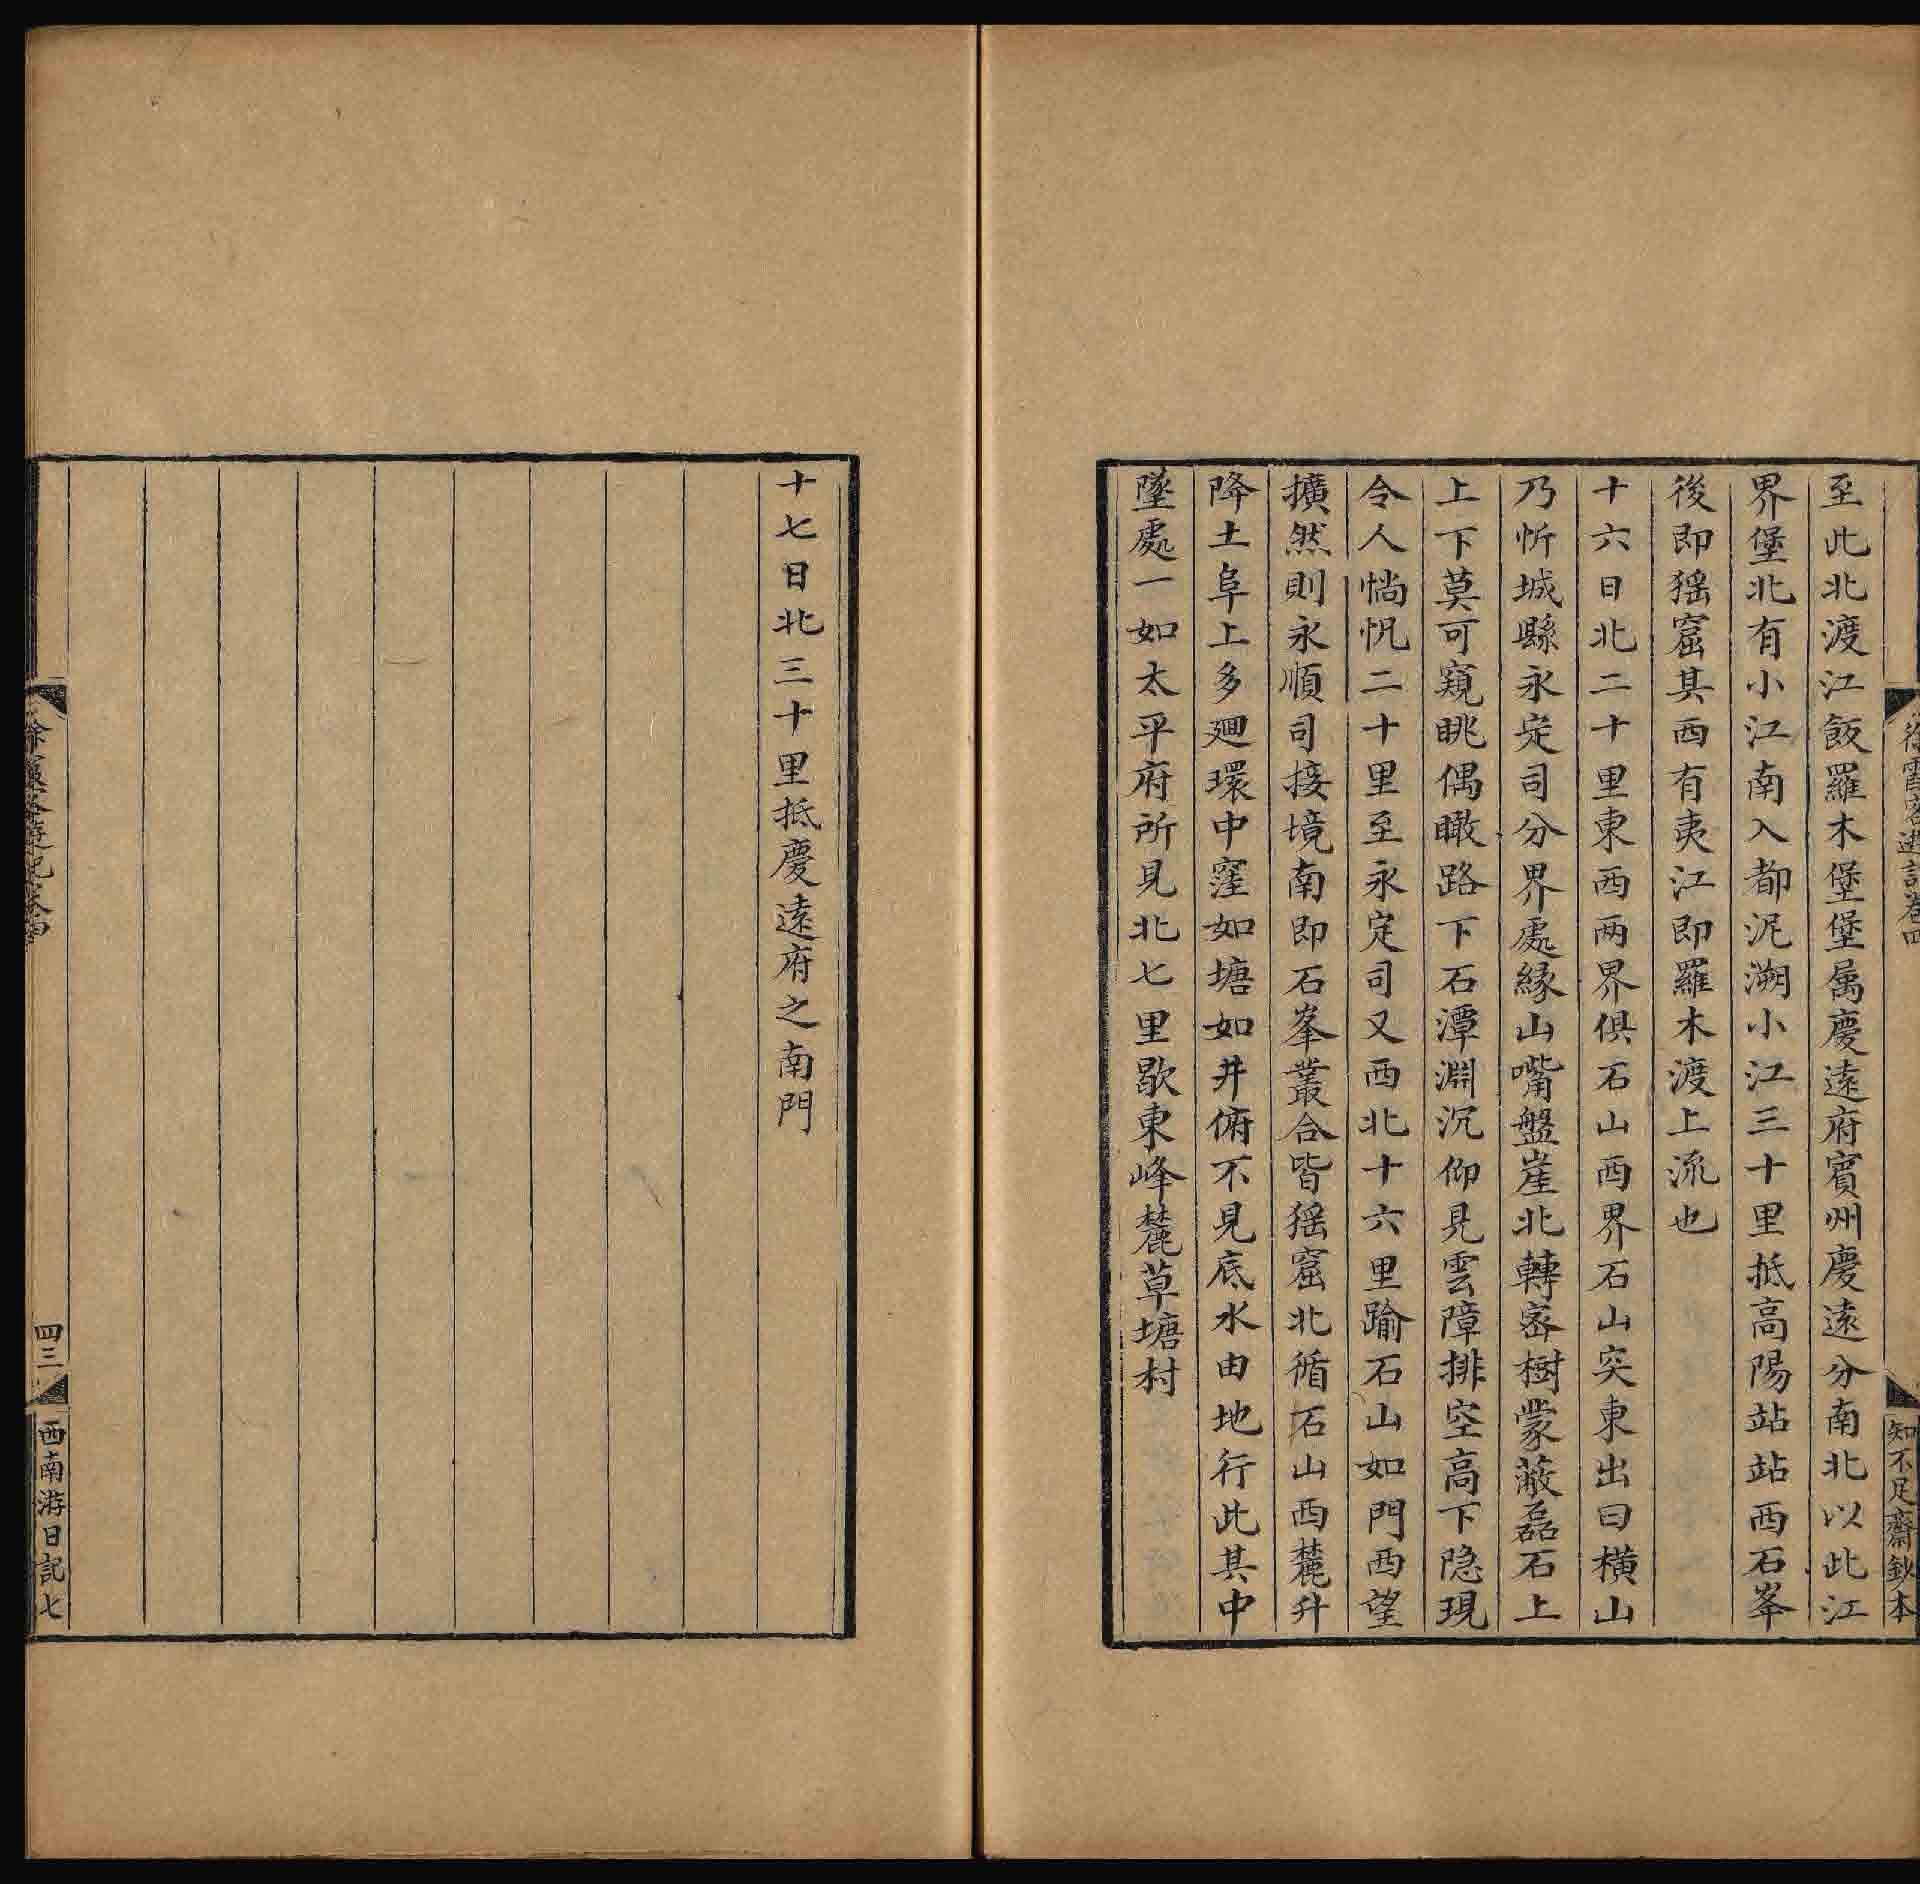 至此北渡江飯羅木堡堡属慶遠府賓州慶遠分南北以此江
界堡北有小江南入都泥溯小江三十里抵高陽站站西石峯
後即猺窟其西有夷江即羅木渡上流也
十六日北二十里東西两界俱石山西界石山突東出曰橫山
乃忻城縣永定司分界處緣山嘴盤崖北轉宻樹蒙蔽磊石上
上下莫可窺眺偶瞰路下石潭淵沉仰見雲障排空高下隐現
令人惝怳二十里至永定司又西北十六里踰石山如門西望
擴然則永順司接境南即石峯叢合皆猺窟北循石山西麓升
降土阜上多廻環中窪如塘如井俯不見底水由地行此其中
墜處一如太平府所見北七里歇東峰麓草塘村
知不足齋鈔本
十七日北三十里抵慶遠府之南門
四三
西南游日記七